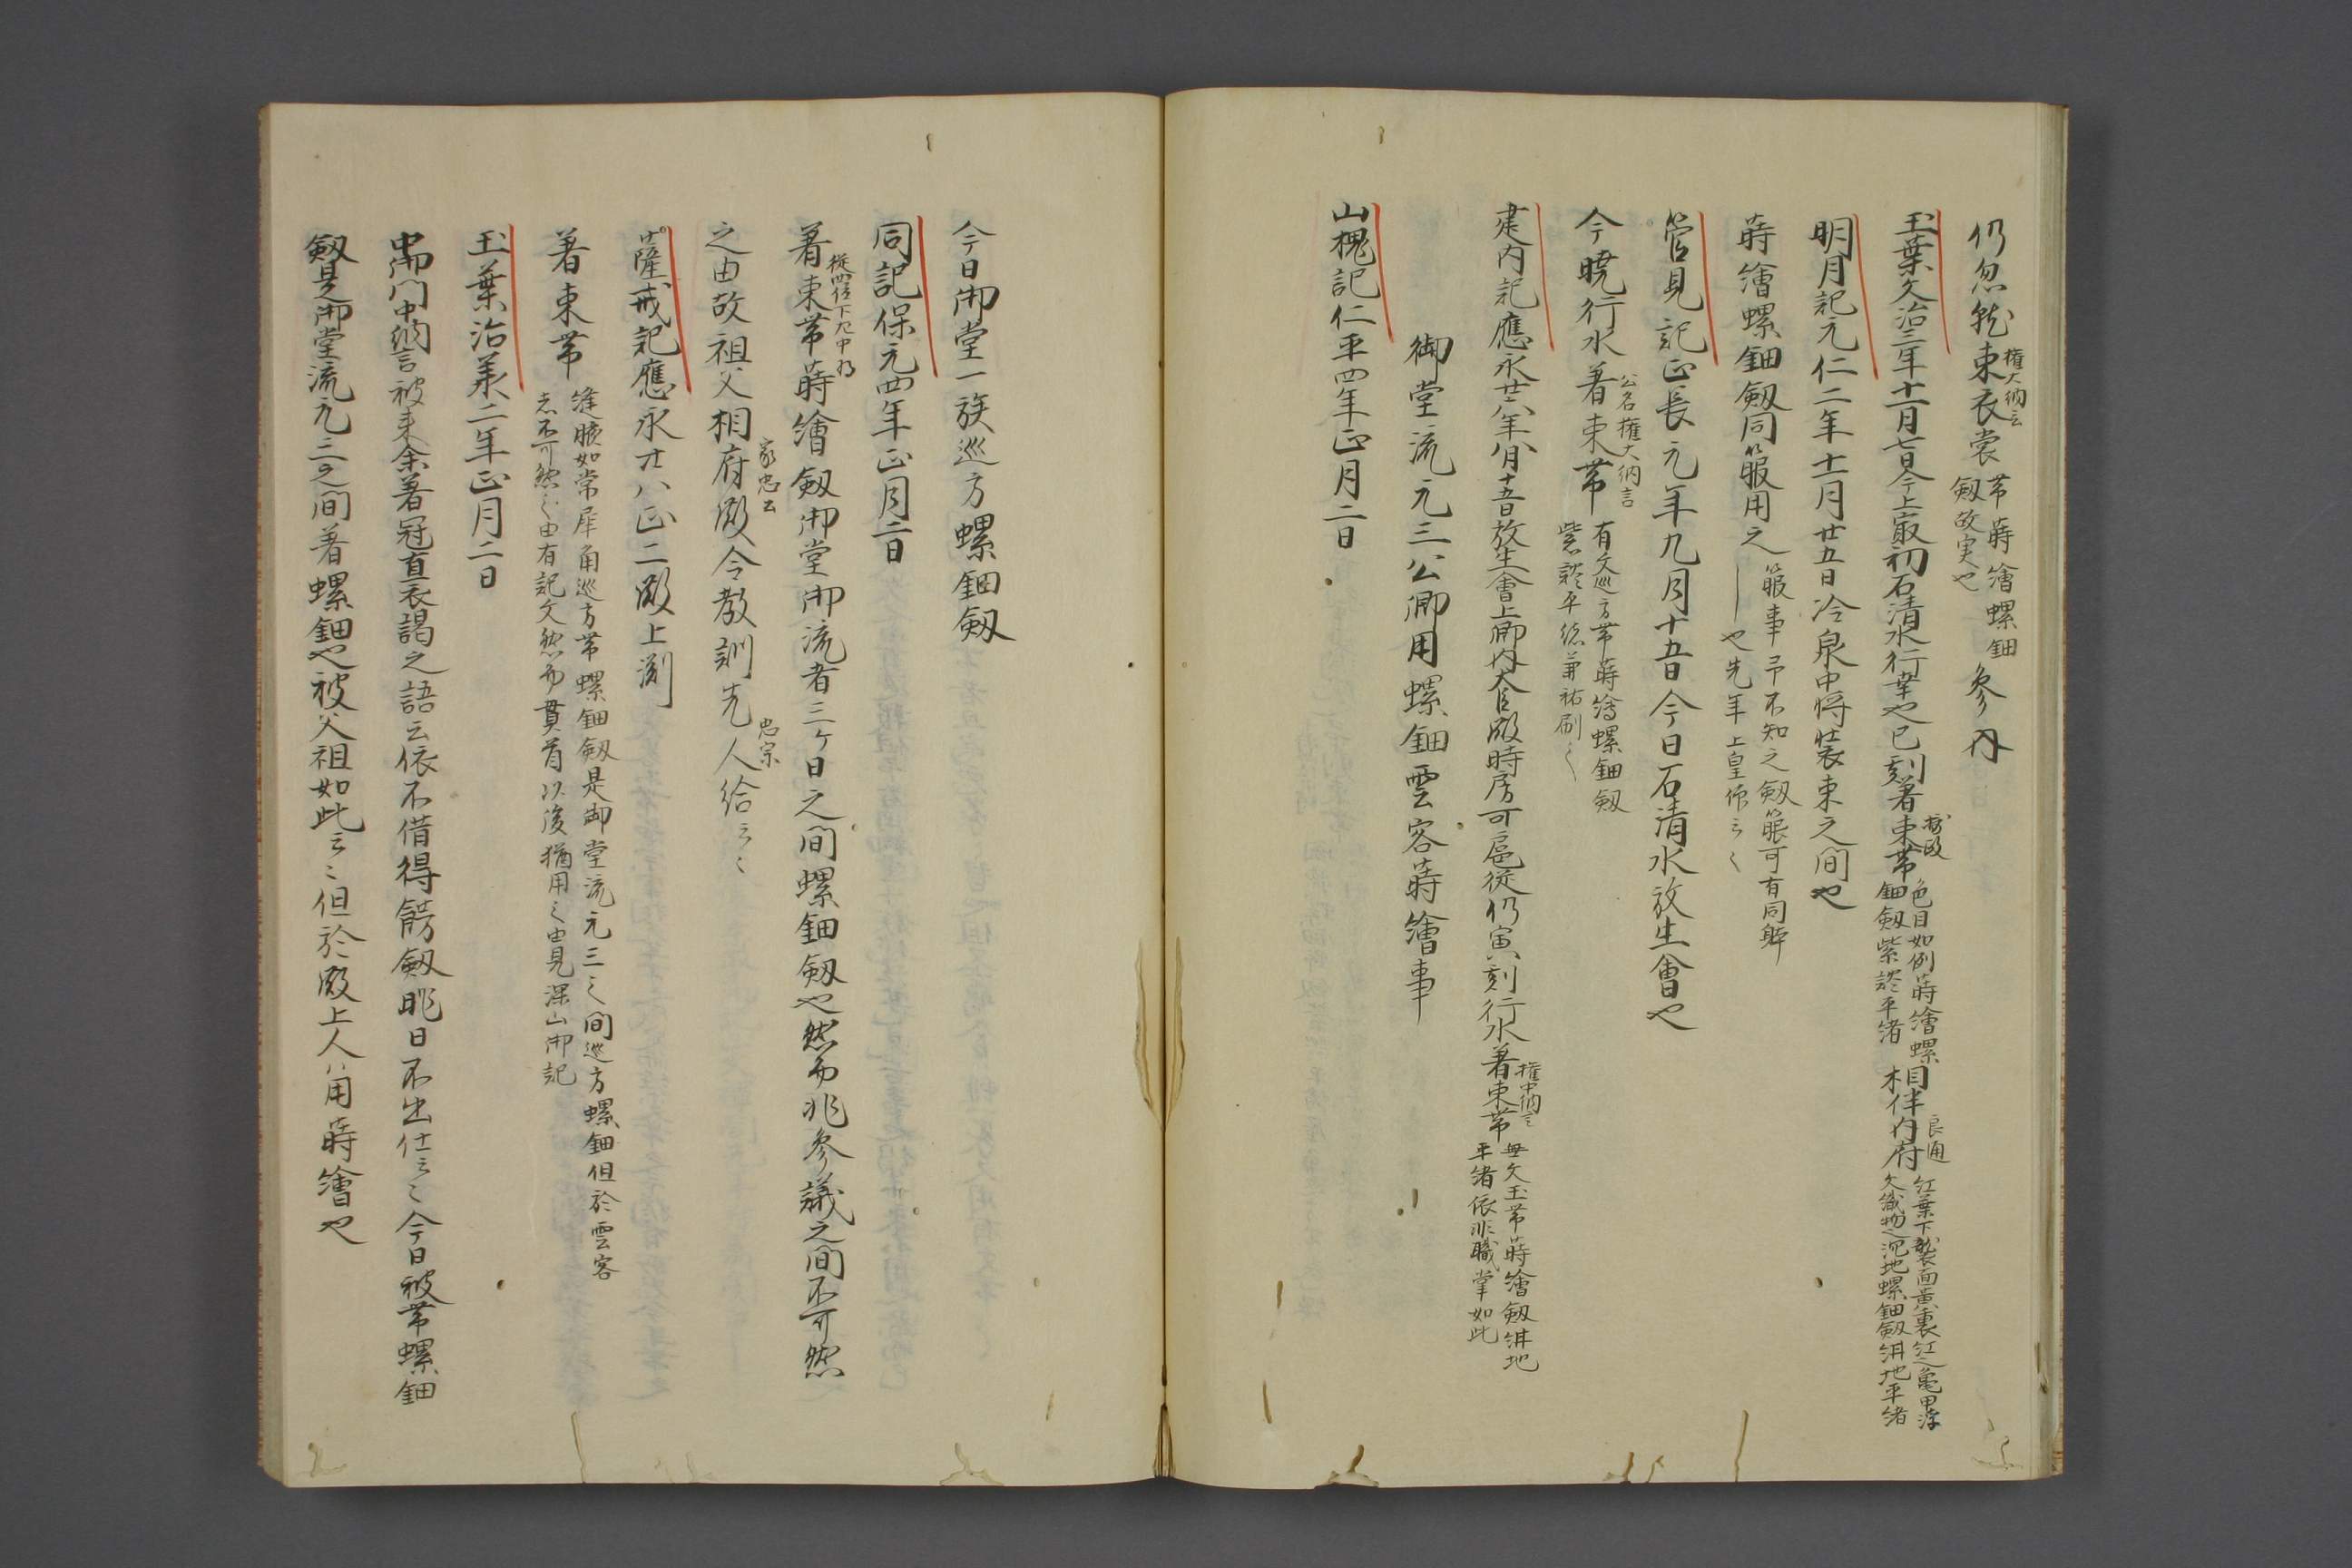 仍忽就束衣裳帯蒔繪螺鈿劔故実也参内
権大納言
玉葉文治三年十一月七日今上最初石清水行幸也巳刻着束帯色目如例蒔繪螺鈿劔紫終平緒相伴内府紅葉下襲面黄裏紅亀甲浮文織物沉地螺鈿劔紺地平緒
摂政
良通
明月記元仁二年十一月廿五日冷泉中将装束之間也
蒔繪螺鈿劔同箙用之箙事予不知之劔箙可有同躰也先年上皇作云々
管見記正長元年九月十五日今日石清水放生會也
今暁行水着束帯有文巡方帯蒔繪螺鈿劔紫終平緒
公名権大納言
建内記應永廿八年八月十五日放生會上卿内大臣殿時房可扈従仍寅刻行水着束帯無文玉帯蒔繪劔紺地平緒依非職掌如此
権中納言
御堂流元三公卿用螺鈿雲客蒔繪事
山槐記仁平四年正月二日
今日御堂一族巡方螺鈿劔
同記保元四年正月二日
着束帯蒔繪劔御堂御流者三ケ日之間螺鈿劔也然而非参議之間不可然
従四位下左中将
之由故祖父相府殿令教訓先人給云々
家忠公
忠宗
薩戒記應永廿八正二殿上淵
着束帯縫腋如常犀角巡方帯螺鈿劔是御堂流元三之間巡方螺鈿但於雲客志不可然之由有記文然而貫首以後猶用之由見深山御記
玉葉治承二年正月二日
中御門中納言被来余着冠直衣謁之語云依不借得餝劔昨日不出仕云々今日被帯螺鈿
劔是御堂流元三之間着螺鈿也被父祖如此云々但於殿上人ハ用蒔繪也